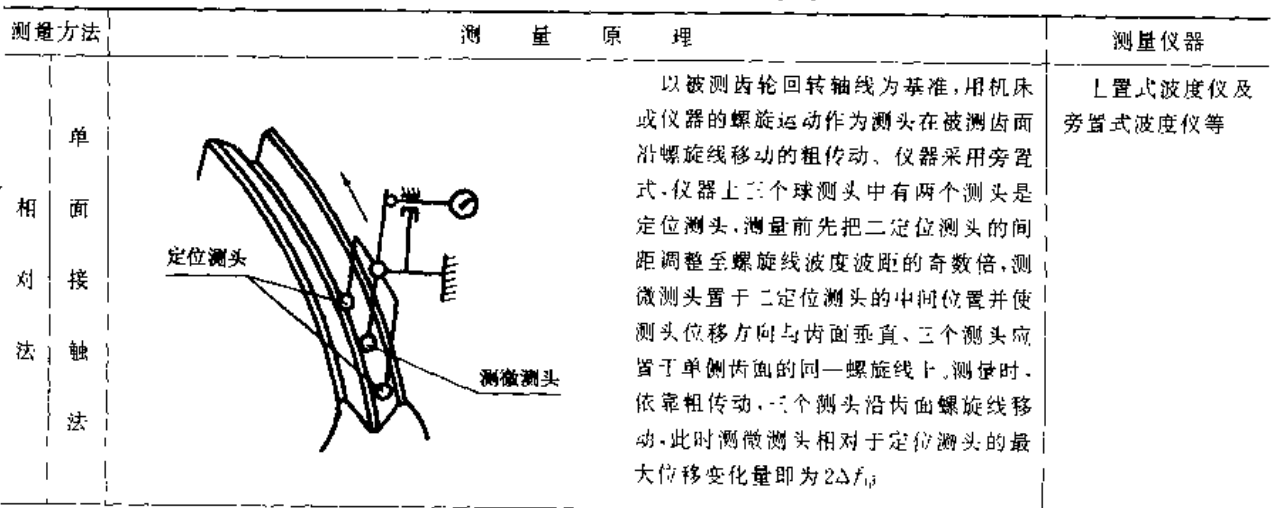 测量方法
测 量 原 理
测量仪器
相对法
单面接触法
定位测头
测微测头
以被测齿轮回转轴线为基准,用机床
或仪器的螺旋运动作为测头在被测齿面
沿螺旋线移动的粗传动、仪器采用旁置
式,仪器上三个球测头中有两个测头是
定位测头,测量前先把二定位测头的间
距调整至螺旋线波度波距的奇数倍,测
微测头置于二定位测头的中间位置并使
测头位移方向与齿面垂直、三个测头应
置于单侧齿面的同一螺旋线上。测量时,
依靠粗传动,三个测头沿齿面螺旋线移
动,此时测微测头相对于定位测头的最
大位移变化量即为2Δf
上置式波度仪及
旁置式波度仪等